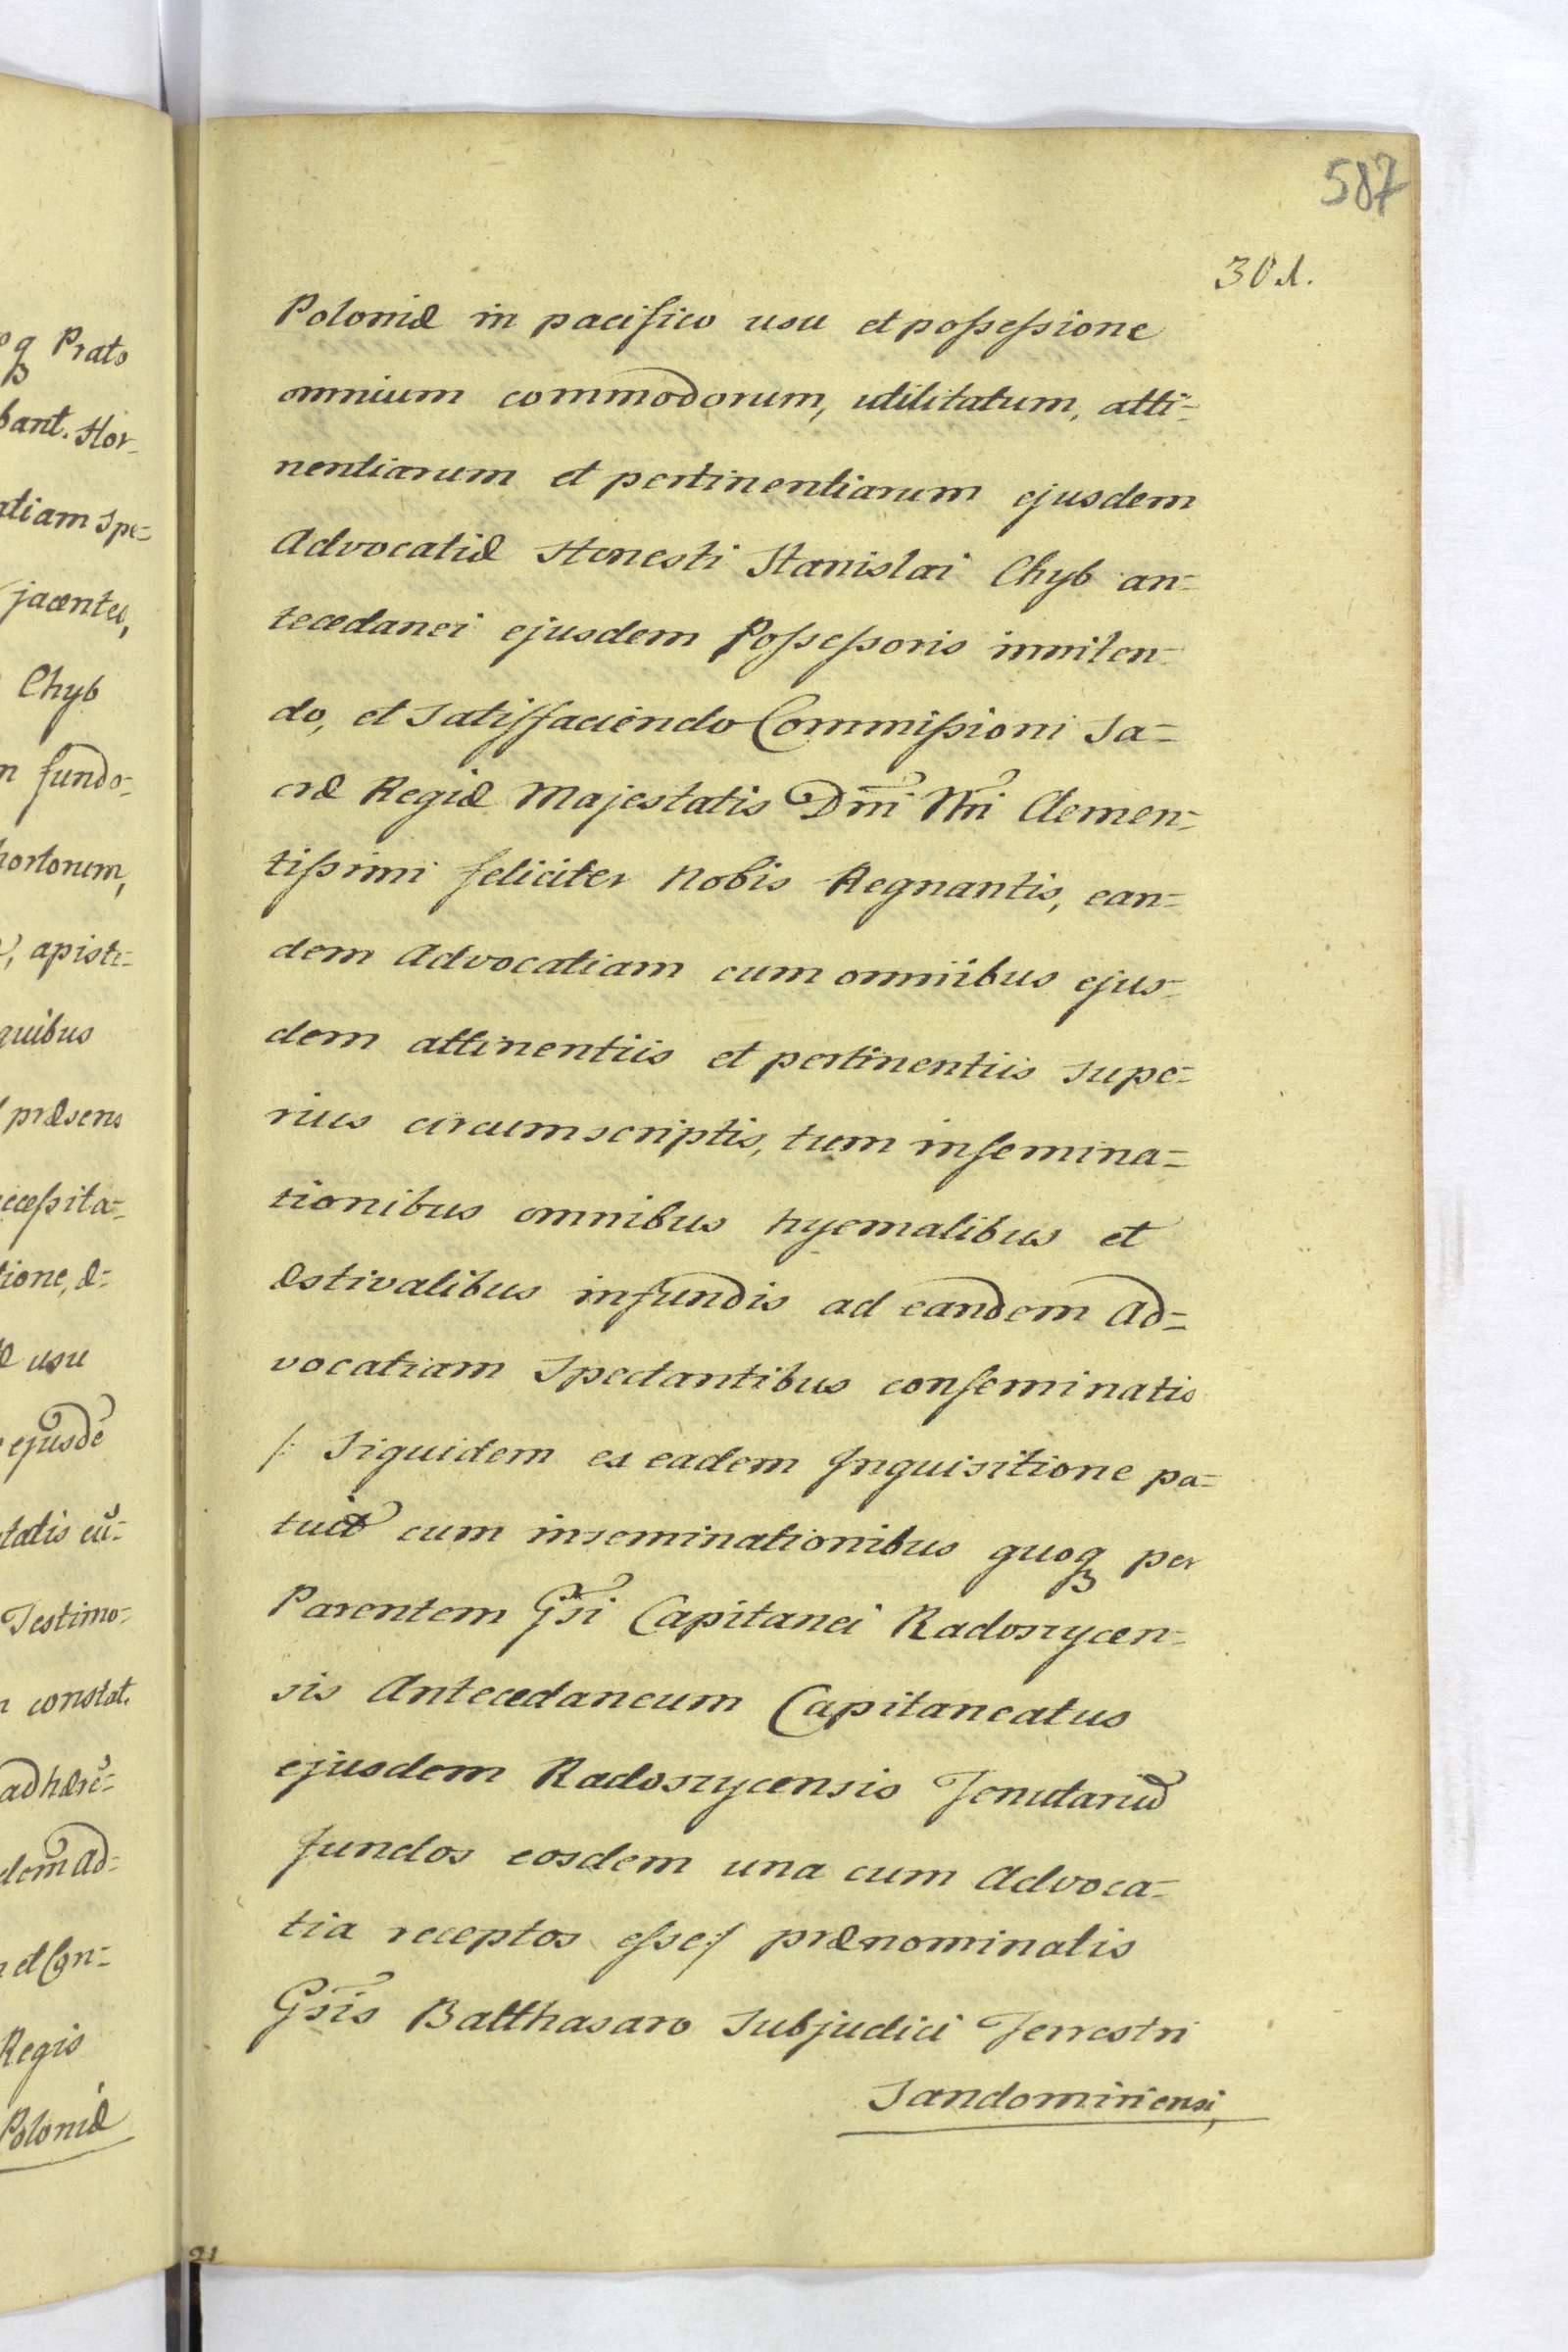 587
301.
Poloniæ in pacifico usu et possessione
omnium commodorum, utilitatum, atti=
nentiarum et pertinentiarum ejusdem
Advocatiæ Honesti Stanislai Chyb an=
tecedanei ejusdem Possessoris inniten=
do, et Satisfaciendo Commissioni Sa=
cræ Regiæ Majestatis Dni Nri Clemen=
tissimi feliciter Nobis Regnantis, ean=
dem Advocatiam cum omnibus ejus=
dem attinentiis et pertinentiis Supe=
rius circumscriptis, tum insemina=
tionibus omnibus hyemalibus et
æstivalibus in fundis ad eandem Ad=
vocatiam Spectantibus conseminatis
/: Siquidem ex eadem Inquisitione pa=
tuit cum inseminationibus quoqꝫ per
Parentem Gsi Capitanei Radoszycen=
sis Antecedaneum Capitaneatus
ejusdem Radoszycensis Tenutariũ
fundos eosdem una cum Advoca=
tia receptos esse :/ prænominatis
Gsis Balthasaro Subjudici Terrestri
Sandomiriensi,
qꝫ Prato
bant. Hor=
atiam Spe=
jacentes,
Chyb
fundo=
hortorum,
apiste=
quibus
præsens
ecessita=
tione, æ=
usu
ejusdẽ
tatis cũ=
Testimo=
constat.
adhærẽ=
dem Ad=
et Con=
Regis
Poloniæ
21